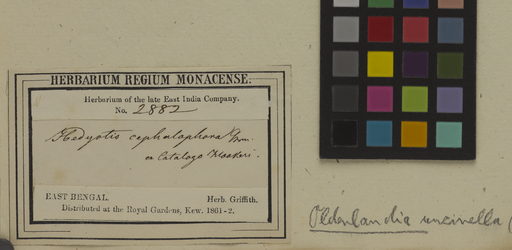 HERBARIUM REGIUM MONACENSE.
Herbarium of the late East India Company.
No. 2882
Hedyotis cephalophora
ex Catalogo Hookeri.
EAST BENGAL. Herb. Griffith.
Distributed at the Royal Gardens, Kew. 1861-2.
Oldenlandia uncinella (